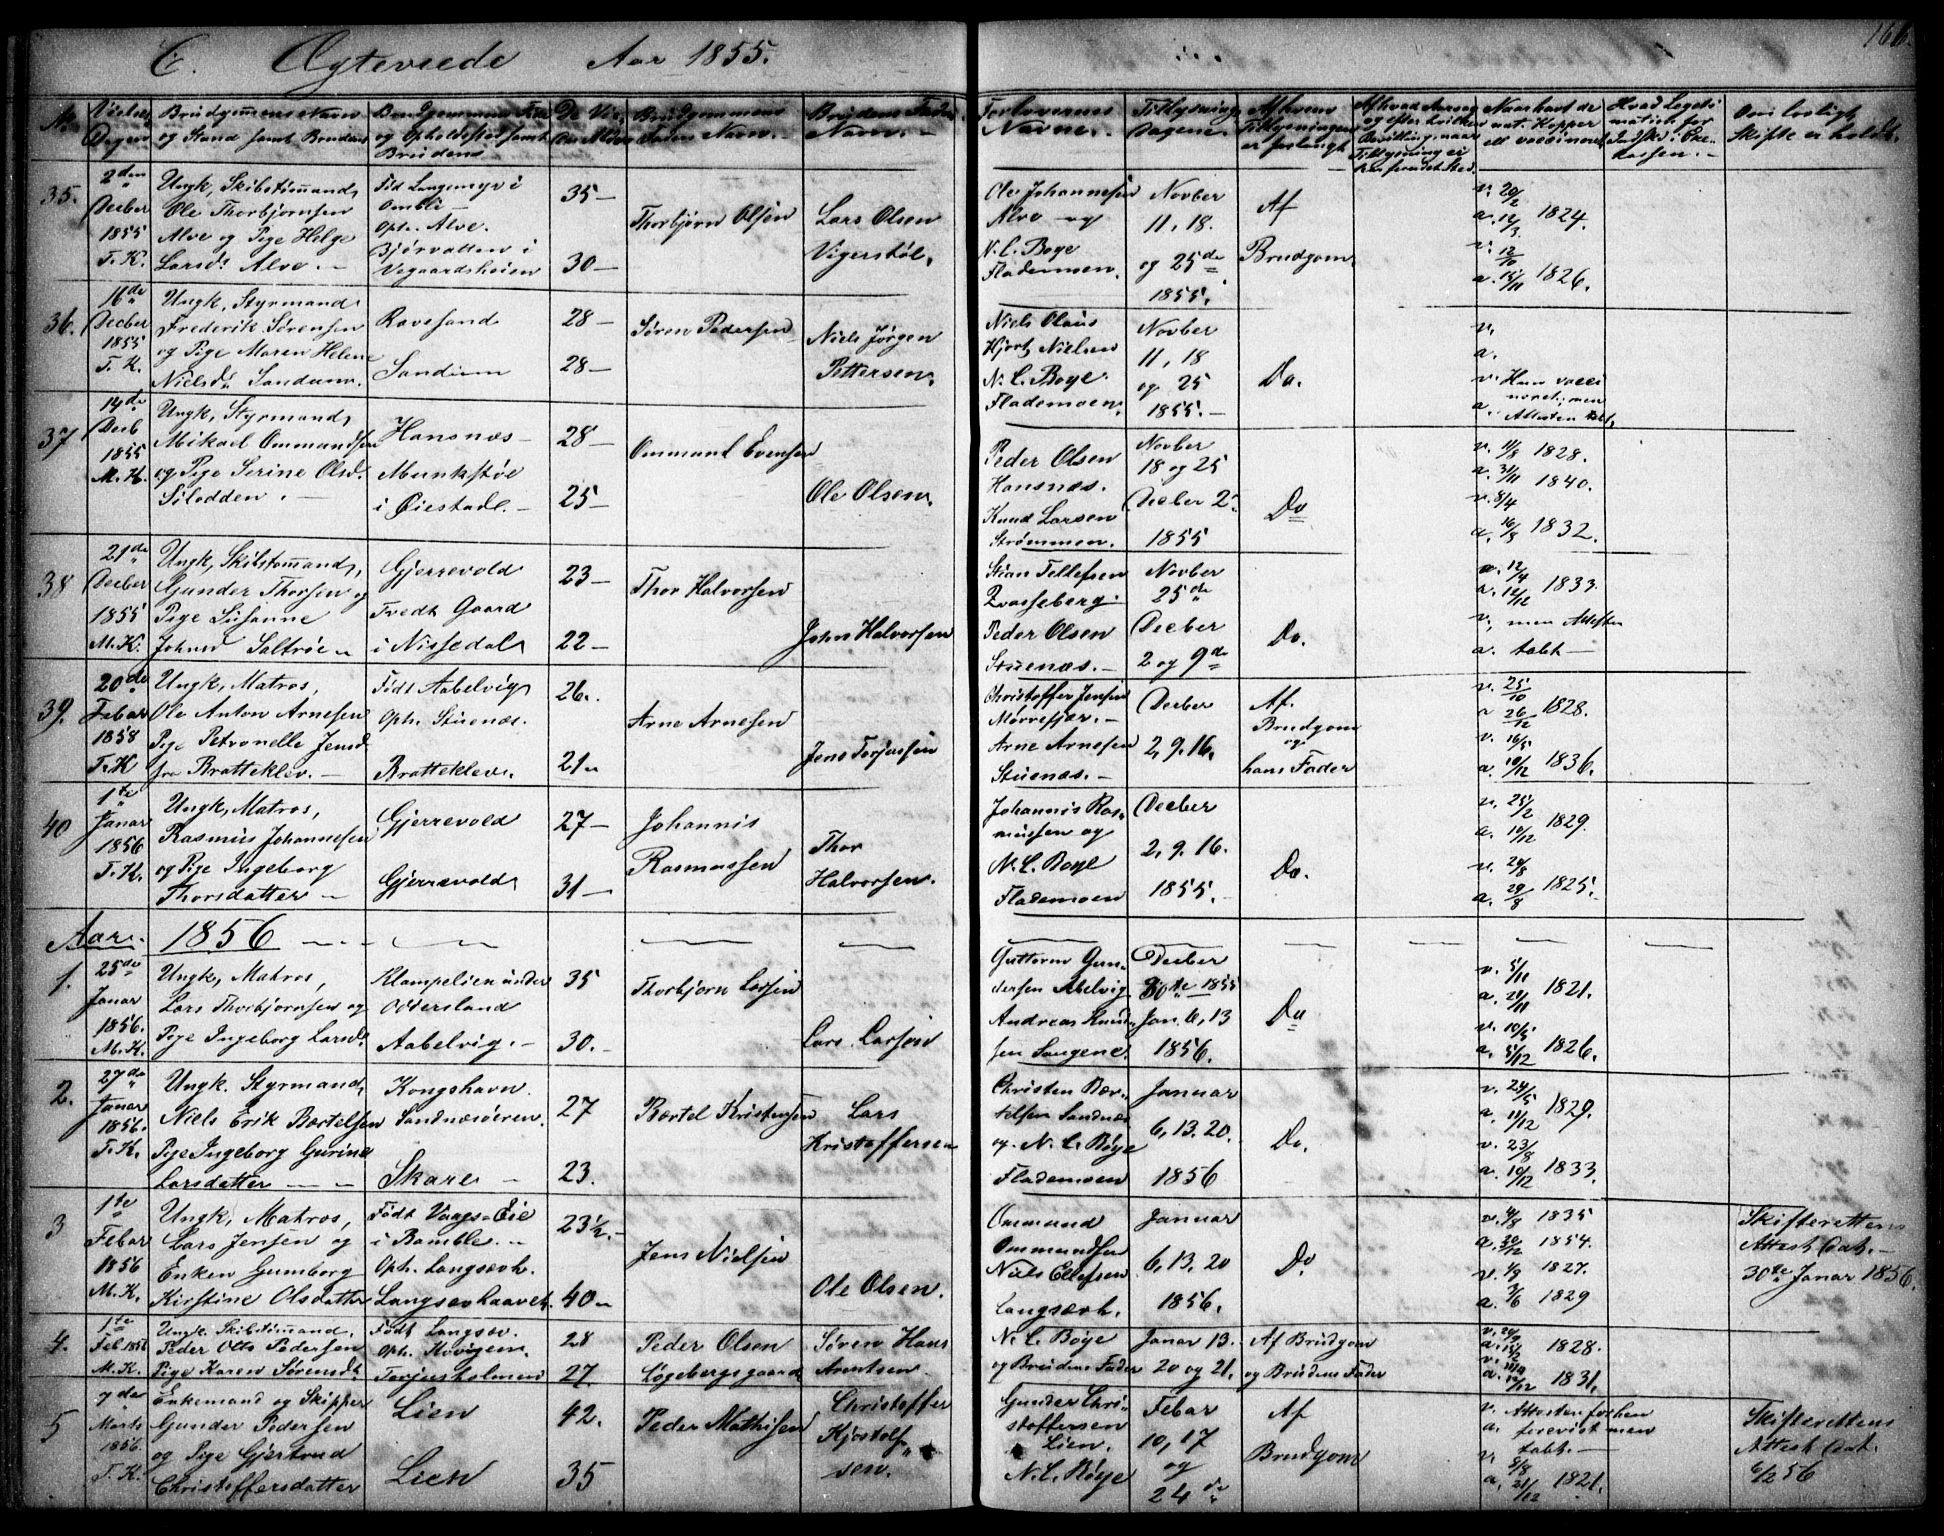 166.
C. Ægteviede Aar 1855.
No. Vielses Dagen
Brudgommens Navn og Stand samt Brudens
De Vi- des Alder
Brudgommens Faders Navn.
Brudens Faders Navn. –
Forlovernes Navne. –
Tillysnings Dagene. –
Af hvem Tillysningen er forlangt
Om lovligt Skifte er holdt.
35.
2den Decber 1855 T. K.
Ungk, Skibstømmand,
Ole Thorbjørnsen
Alve og Pige Helge
Larsdr Alve. –
Fød Langemyr i
Ombli –
Oph. Alve.
Bjørvatten i
Vegaardsheien
35 –
30 –
Thorbjørn Olsen
Lars Olsen
Vigerstøl.
Ole Johannesen
Alve – og
N. C. Boye
Flademoen.
Novber
11, 18.
og 25de
1855.
Af
Brudgom.
v. 20/2
a. 14/3 1824.
v. 12/10
a. 15/11 1826.
36.
16de Decber 1855 T. K.
Ungk, Styrmand
Frederik Sørensen
og Pige Maren Helene
Nielsdr Sandum.
Ravesand
Sandum
28 –
28 –
Søren Pedersen
Niels Jørgen
Pettersen.
Niels Olaus
Hjort Nielsen
N. C. Boye
Flademoen.
Novber
11, 18
og 25
1855. –
Do.
v.
a.
v. Hun vacci
neret; men
a. Attesten tabt,
37
14de Decb 1855 M. K.
Ungk, Styrmand,
Mikael Ommundsen
og Pige Serine Olsd.
Silodden. –
Hansnæs –
Munkstøe
i Øiestad. –
28 –
25 –
Ommund Evensen
Ole Olsen.
Peder Olsen
Hansnæs.
Knud Larsen
Strømmen.
Novber
18 og 25
Decber 2.
1855
Do
v. 11/8 1828.
a. 31/11 1840.
v. 8/4
a. 16/8 1832.
38
21de Decber 1855 M. K.
Ungk, Skibstømmand,
Gunder Thorsen og
Pige Susanne
Johnsd Saltrøe
Gjerrevold
Tvedt Gaard
i Nissedal
23 –
22 –
Thor Halvorsen
John Halvorsen
Stian Tellefsen
Qvasseberg.
Peder Olsen
Stuenæs. –
Novber
25de
Decber
2 og 9de
Do.
a. 12/4
a. 12/12 1833.
v, men Attesten
a. tabt –
39.
20de Febar 1858 T. K
Ungk, Matros,
Ole Anton Arnesen
Pige Petronelle Jensd
fra Bratteklev. –
Født Aabelvig
Oph. Stuenæs.
Bratteklev.
26.
21 –
Arne Arnesen
Jens Torjussen
Christoffer Jensen
Mørrefjær. –
Arne Arnesen
Stuenæs. –
Decber
2, 9. 16.
Af.
Brudgom
og
hans Fader
v. 25/10
a 26/12 1828.
v. 16/5
a. 10/12 1836.
40
1te Janar 1856 T. K.
Ungk, Matros,
Rasmus Johannesen
og Pige Ingeborg
Thorsdatter –
Gjerrevold
Gjerrevold
27 –
31 –
Johannis
Rasmussen
Thor
Halvorsen.
Johannis Ras-
mussen og
N. C. Boye
Flademoen
Decber
2, 9. 16.
1855.
Do.
v. 25/2
a. 10/12 1829.
v. 20/8
a. 29/8 1825.
Aar. 1856
1.
25de Janar 1856. M. K.
Ungk, Matros,
Lars Thorbjørnsen og
Pige Ingeborg Larsd.
Klampelien under
Oddersland
Aabelvig. –
35
30. –
Thorbjørn Larsen
Lars Larsen
Guttorm Gun-
dersen Abelvig
Andreas Knud-
sen Songene.
Decber
30te 1855
Jan. 6, 13
1856.
Do
v. 5/11
a. 20/11 1821.
v. 10/5
a. 5/12 1826.
2.
27de Janar 1856. T. K.
Ungk. Styrmand,
Niels Erik Bærtelsen
Pige Ingeborg Gurine
Larsdatter – –
Kongshavn.
Sandnæsøeren.
Skare –
27
23.
Bærtel Kristensen
Lars
Kristoffersen
Christen Bær-
telsen Sandnæs
og. N. C. Bøye
Flademoen
Januar
6, 13. 20.
1856
Do.
v. 24/5
a. 11/12 1829.
v. 23/8
a. 10/12 1833.
3
1te Febar 1856 M. K.
Ungk, Matros,
Lars Jensen og
Enken Gumborg
Kirstine Olsdatter
Født Vaags-Eie
i Bamble. –
Oph. Langsævh.
Langsævhaavet.
23½. –
40 –
Jens Nielsen
Ole Olsen.
Ommund
Ommundsen
Niels Ellefsen
Langsævh.
Januar
6, 13, 20
1856.
Do
v. 4/8 1835
a. 30/12 1854.
v. 1/9 1827.
a. 3/6 1829
Skifterettens
Attest Dat. –
30te Janar 1856.
4.
1te Feb 1856 M. K.
Ungk. Skibstømmand.
Peder Otto Pedersen
Pige Karen Sørensdt
Født Langsæv.
Oph. Kuvigen.
Torjusholmen
28
27
Peder Olsen
Løgebergsgaard
Søren Hans
Arntsen.
N. C. Boye
og Brudens Fader
Janar 13.
20 og 21.
Af Brudgom
og Brudens Fader
1828.
1831.
5
7de Marts 1856. T. K.
Enkemand og Skipper
Gunder Pedersen
og Pige Gjertrud
Christoffersdatter
Lien
Lien
42.
35
Peder Mathisen
Christoffer
Kjostolf-
sen.
Gunder Chri-
stoffersen
Lien.
N. C. Bøye
Febar
10, 17
og
24de
Af
Brudgom
v. Attesten forhen
a. foreviist men
tabt. –
v. 8/8
a. 21/12 1821.
Skifterettens
Attest Dat.
6/2 56